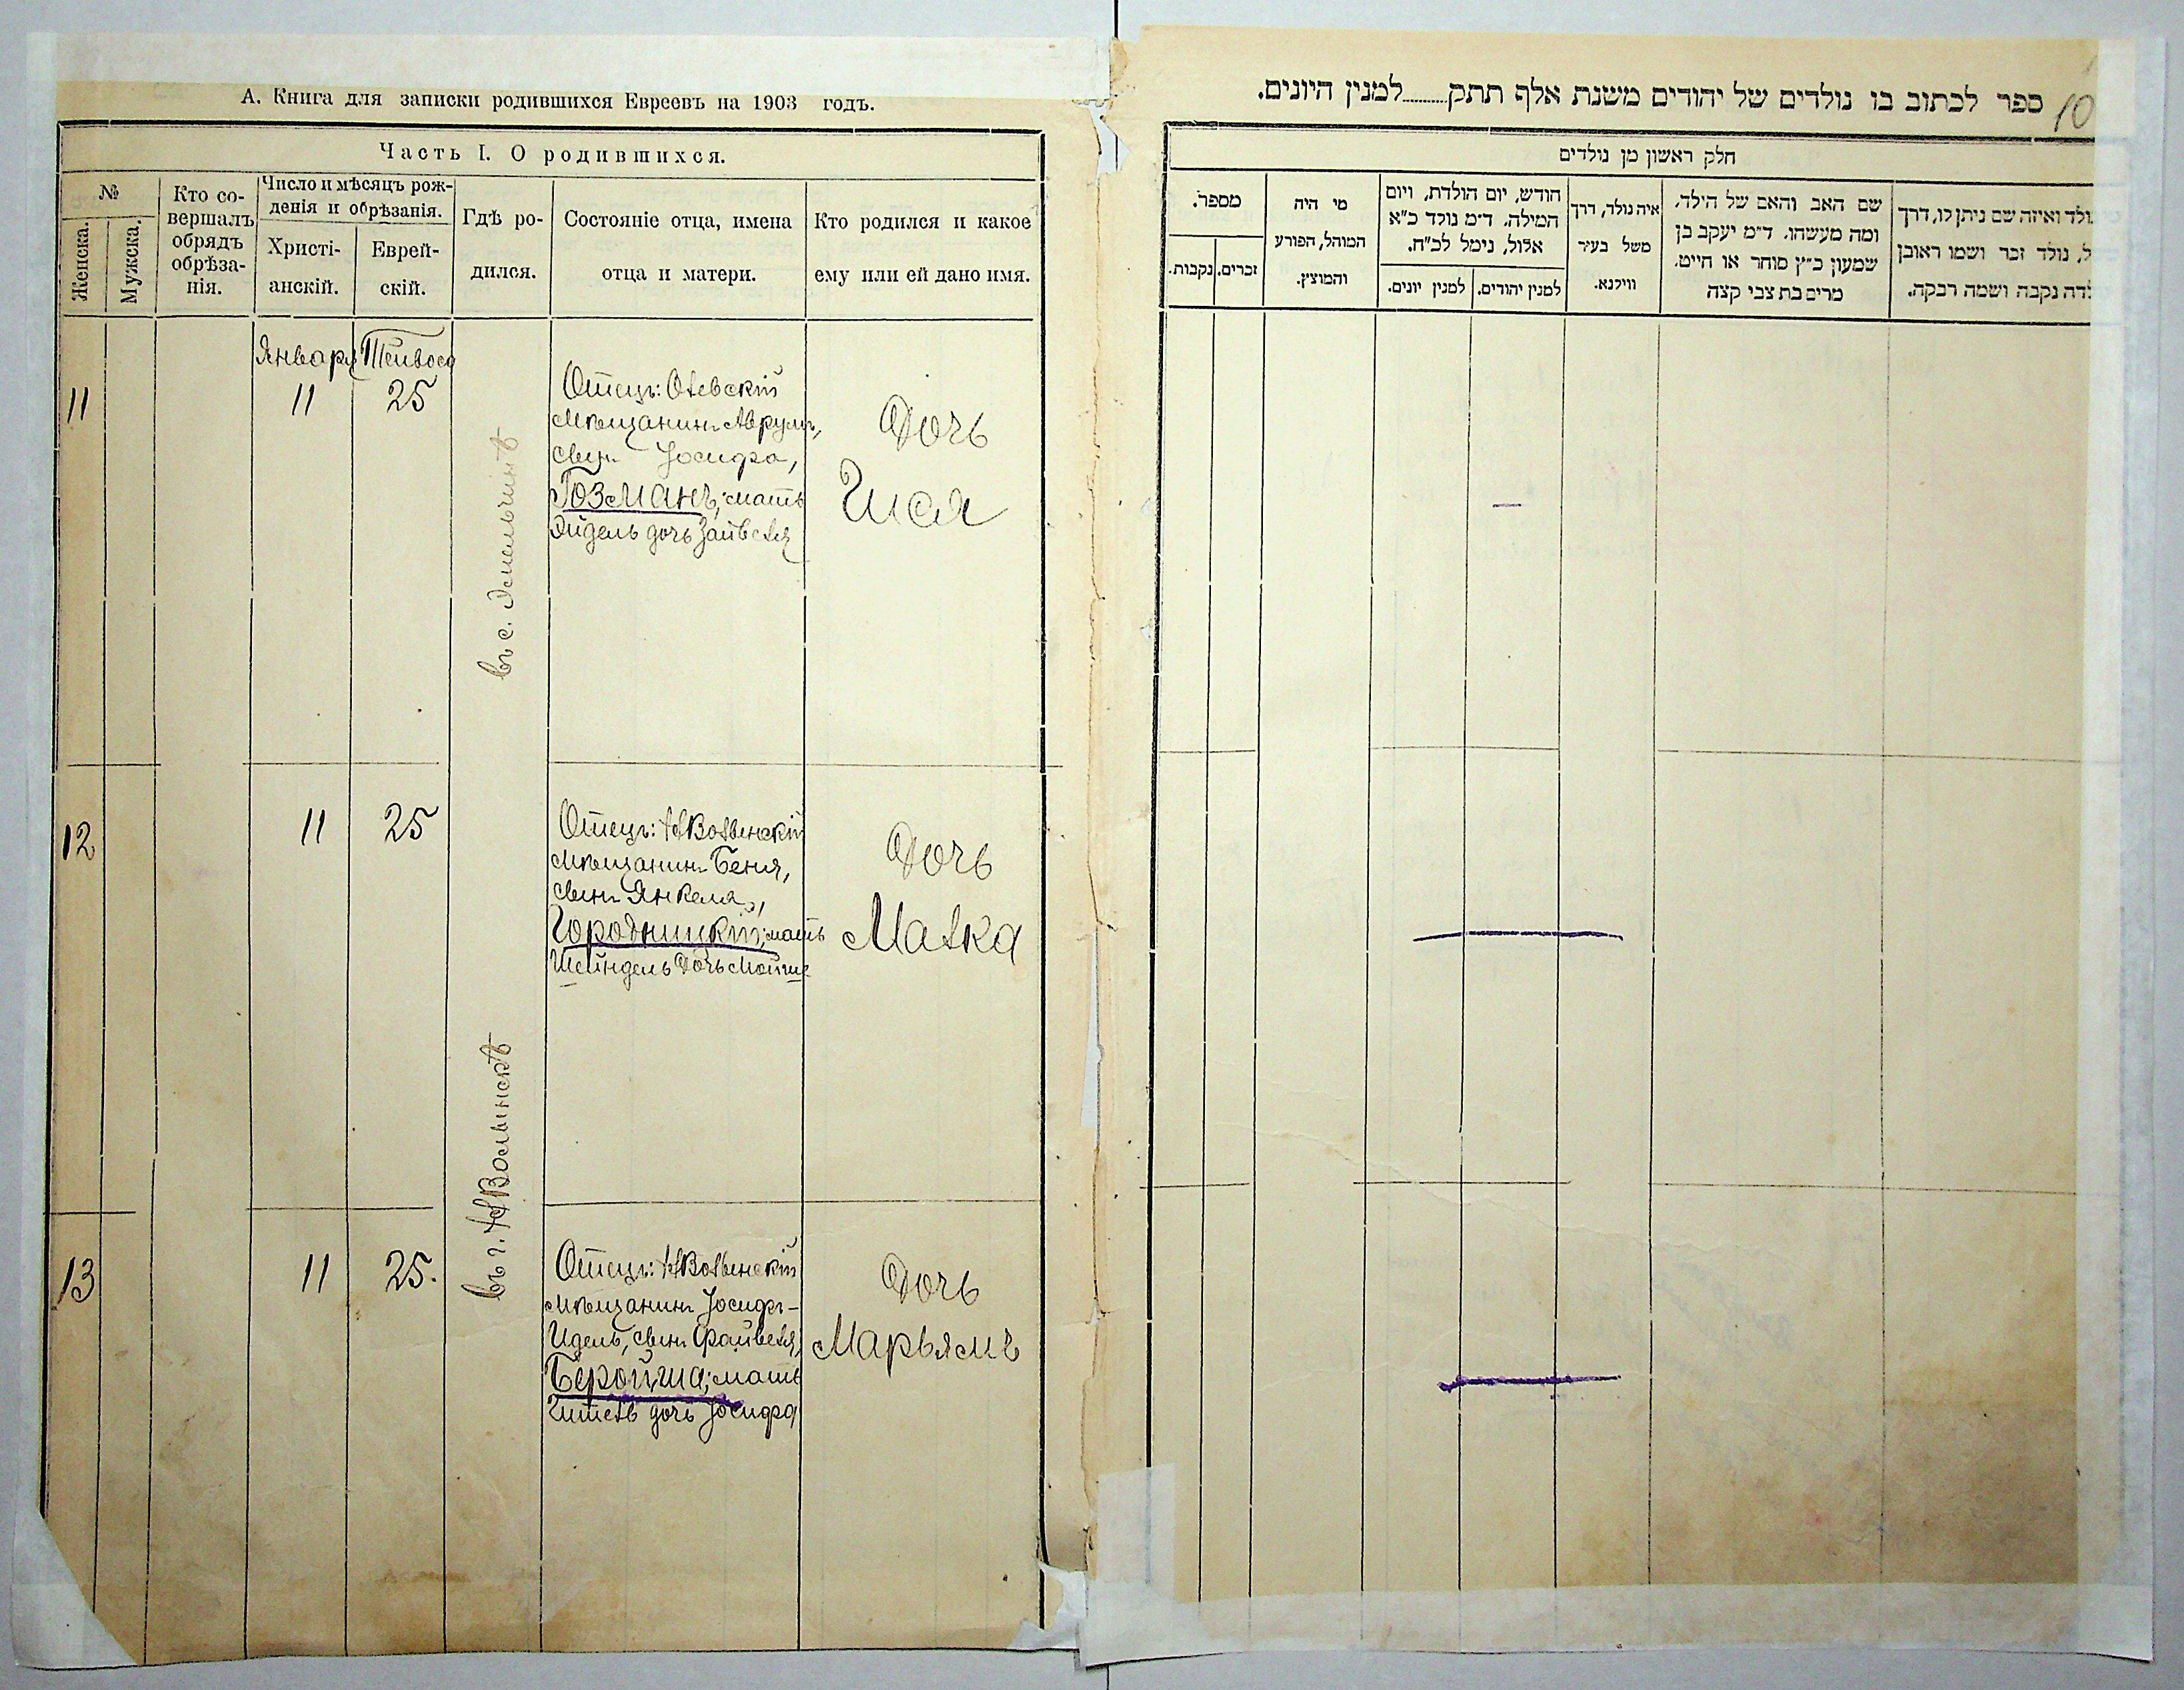 А. Книга для записки родившихся Евреевъ на 1903 годъ.
Часть I. О родившихся.
№
Женска.
Мужска.
Кто со-
вершалъ
обрядъ
обрѣза-
нія.
Число и мѣсяцъ рож-
денія и обрѣзанія.
Христі-
анскій.
Еврей-
скій.
Гдѣ ро-
дился.
Состояніе отца, имена
отца и матери.
Кто родился и какое
ему или ей дано имя.
Января
11
11
25
въ с. Эмельчинѣ
Отецъ: Олевскій
мѣщанинъ Аврумъ,
сынъ Іосифа,
Гозманъ; мать
Эйдель дочь
Дочь
12
11
25
Отецъ: Н Волынскій
мѣщанинъ Беня,
сынъ Янкеля,
Городницкій; мать
Шейндель дочь Мойше
Дочь
Малка
въ г. Н Волынскѣ
13
11
25.
Отецъ: Н Волынскій
мѣщанинъ Іосифъ-
Идель, сынъ Файвеля,
мать
дочь Іосифа
Дочь
Марьямъ
ספר לכתוב בו נולדים של יהודים משנת אלף תתק........למנין היונים.
10
חלק ראשון מן נולדים
מספר.
זכרים.
נקבות.
מי היה
המוהל, הפורע
והמוצץ.
חודש, יום הולדת, ויום
המילה. ד״מ נולד כ״א
אלול, נימל לכ״ח.
למנין יהודים.
למנין יונים.
איה נולד, דרך
משל בעיר
ווילנא.
שם האב והאם של הילד,
ומה מעשהו. ד״מ יעקב בן
שמעון כ״ץ סוחר או חייט.
מרים בת צבי קצה
ולד ואיזה שם ניתן לו, דרך
ל, נולד זכר ושמו ראובן
לדה נקבה ושמה רבקה.